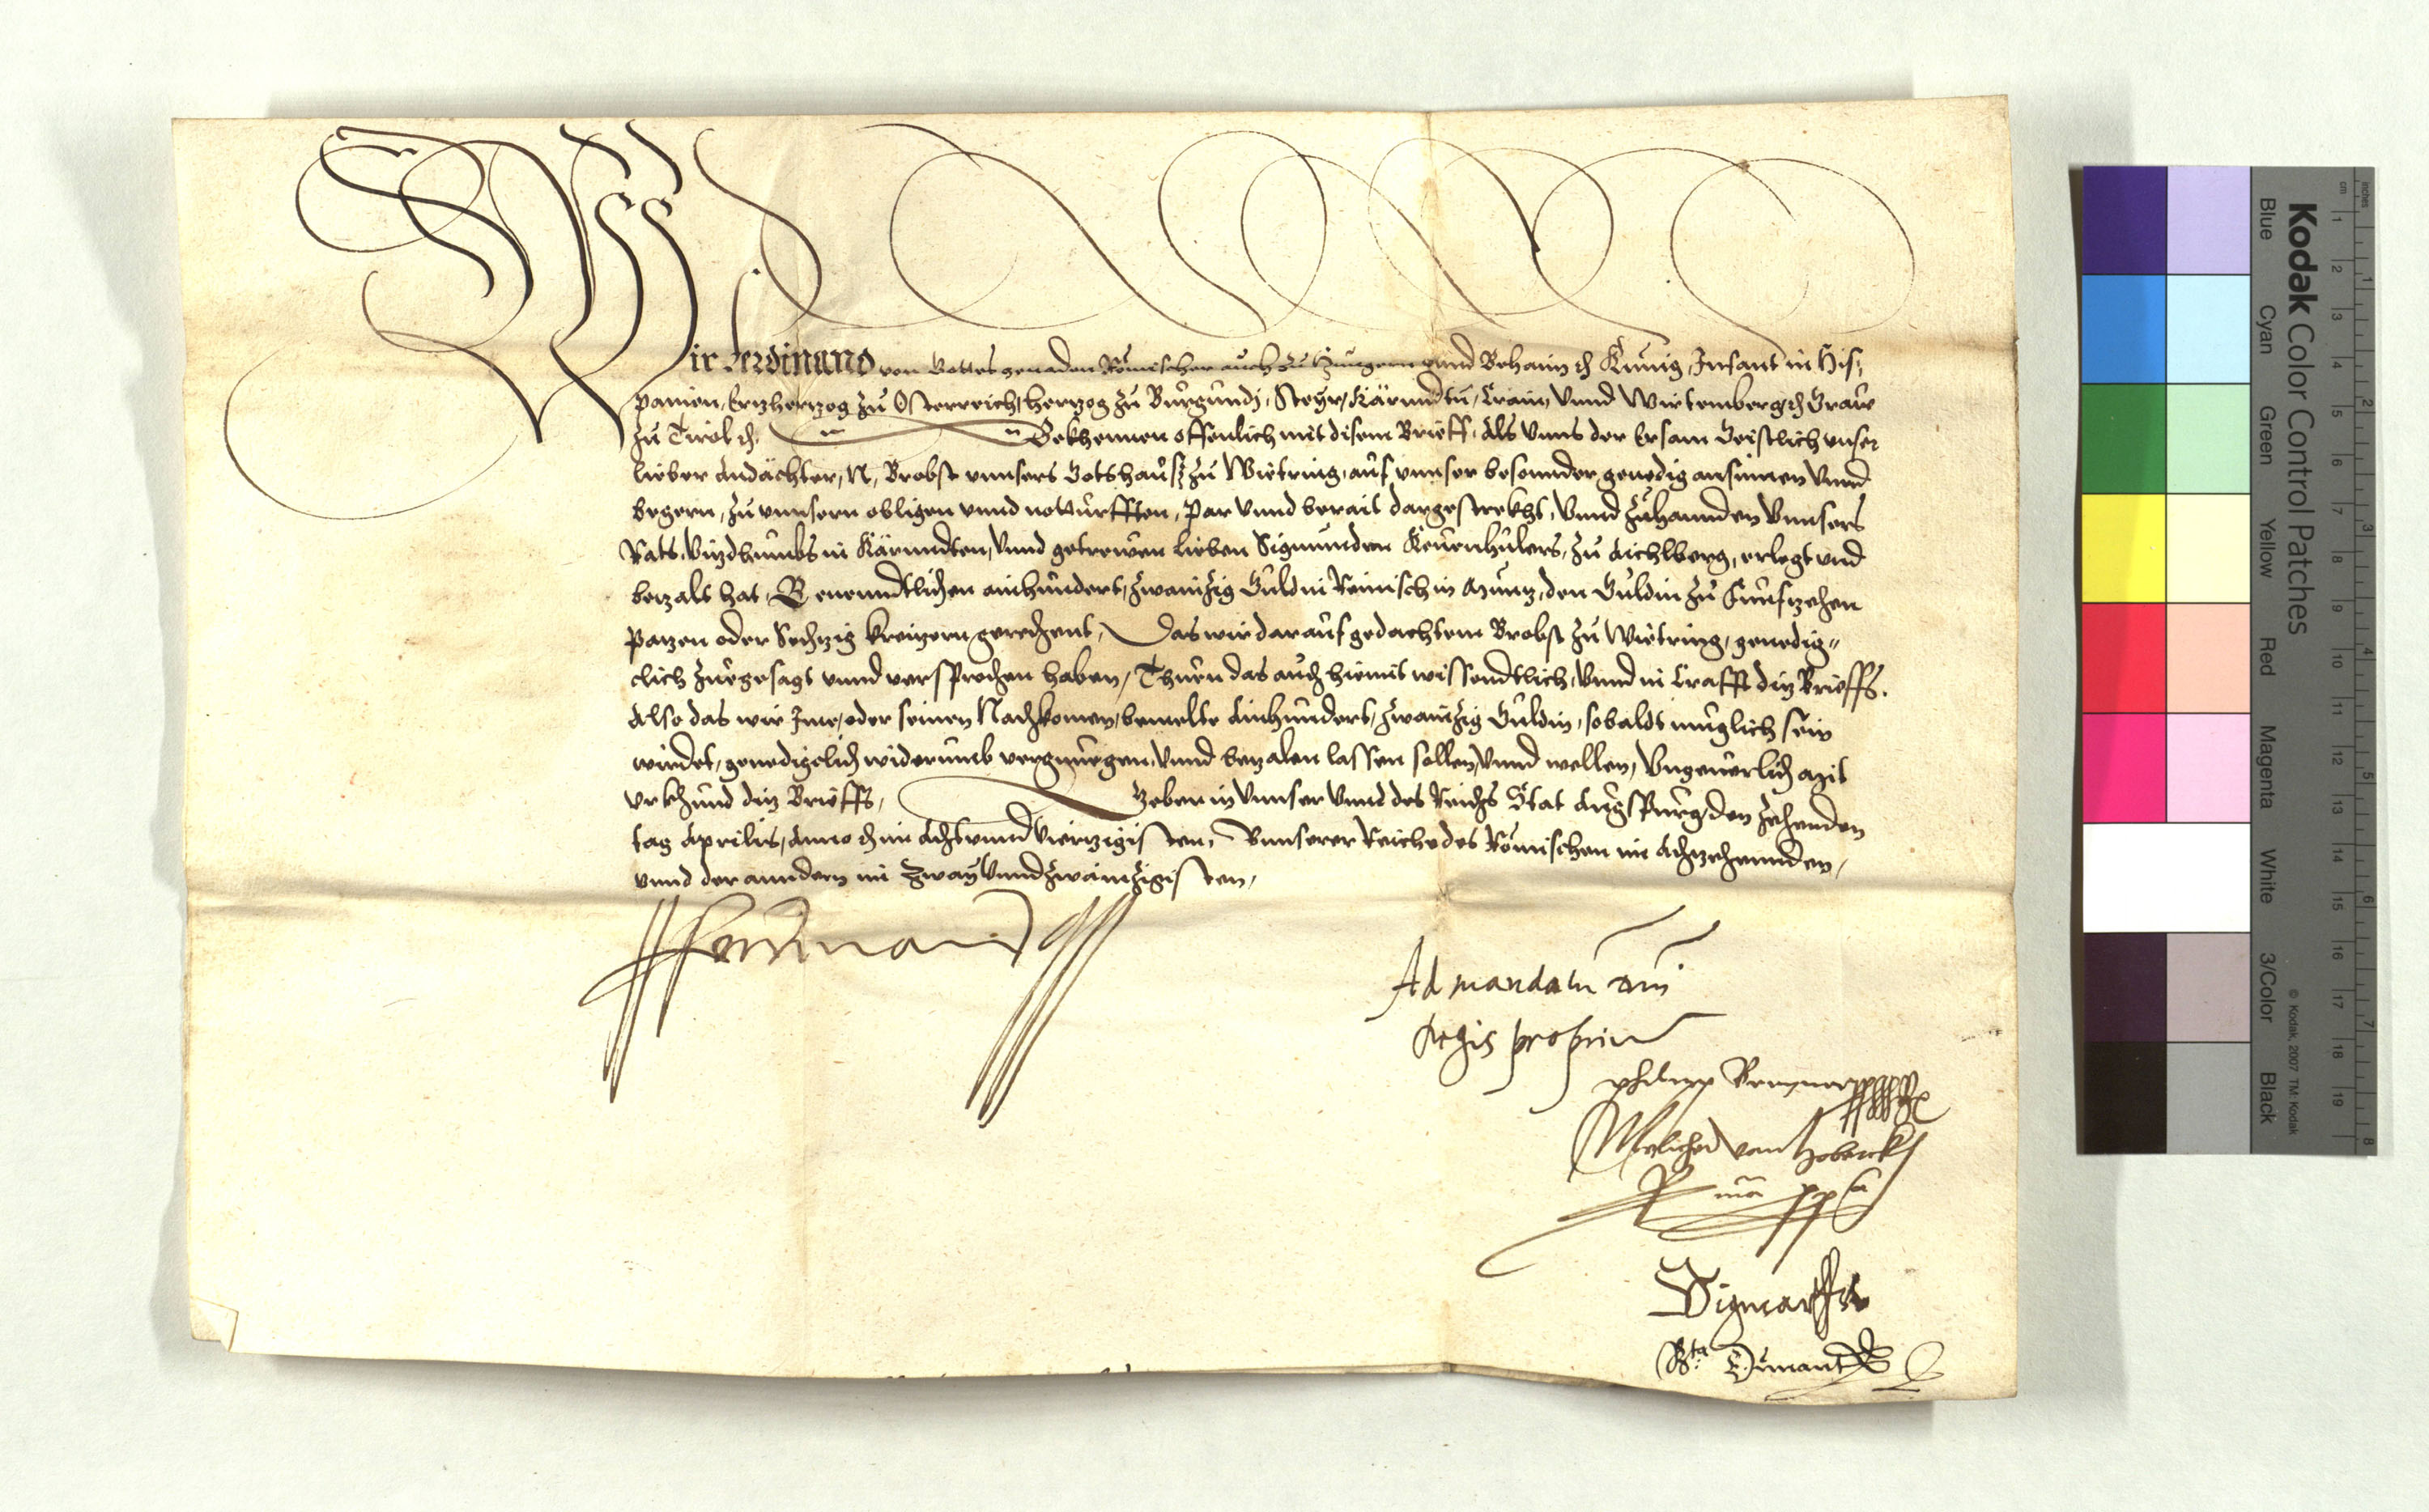 Wir Ferdinand von Gottes genaden Römischer auch zu Hungern vnnd Behaim ꝛc Künig, Infant in His,
panien, Ertzhertzog zu Osterreich, hertzog zu Burgundj, Steyr, Kärnndtn, Crain, vnnd Wirtemberg ꝛc Graue
zu Tirol ꝛc. Bekhennen offenlich mit disem Brieff, Als vnns der Ersam Geistlich vnser
lieber Andächter, N, Brobst vnnsers Gotshauss zu Wietring, auf vnnser besonnder genedig ansinnen vnnd
begern, zu vnnsern obligen vnnd notturfften, par vnnd berait dargestrekht, vnnd zuhannden vnnsers
Rats, vitzdhumbs in Kärnndten, vnnd getrewen lieben Sigmunden Keuenhulers, zu Aichlberg, erlegt vnd
betzalt hat, Benenndtlichen ainhundert, zwaintzig Guldin Reinisch in Muntz, den Guldin zu Funftzehen
patzen oder Sechtzig kreitzern gerechent, Das wir darauf gedachtem Brobst zu Wietring, genedig"
clich zuegesagt vnnd versprochen haben, Thuen das auch hiemit wissendtlich, vnnd in Crafft ditz Brieffs.
Also das wir Ime, oder seinen Nachkomen, bemelte Ainhundert, zwaintzig Guldin, sobaldt muglich sein
wirdet, genedigclich widerumb vergnuegen, vnnd betzalen lassen sollen, vnnd wellen, Vngeuerlich Mit
vrkhund ditz Brieffs, Geben in vnnser vnnd des Reichs Stat Augspurg, den zehenden
tag Aprilis, Anno ꝛc im Acht vnnd Viertzigisten, Vnnserer Reiche des Römischen im Achtzehennden,
vnnd der anndern im Zway vnnd zwaintzigisten,
Ferdinand
Ad mandatu dni
Regis propriu
philipp Breyner
Melicher von Hoberck
Kodak Color Control Patches
Blue Cyan Green Yellow Red Magenta White 3/Color Black
© Kodak, 2007 TM: Kodak
inches 1 2 3 4 5 6 7 8
cm 1 2 3 4 5 6 7 8 9 10 11 12 13 14 15 16 17 18 19